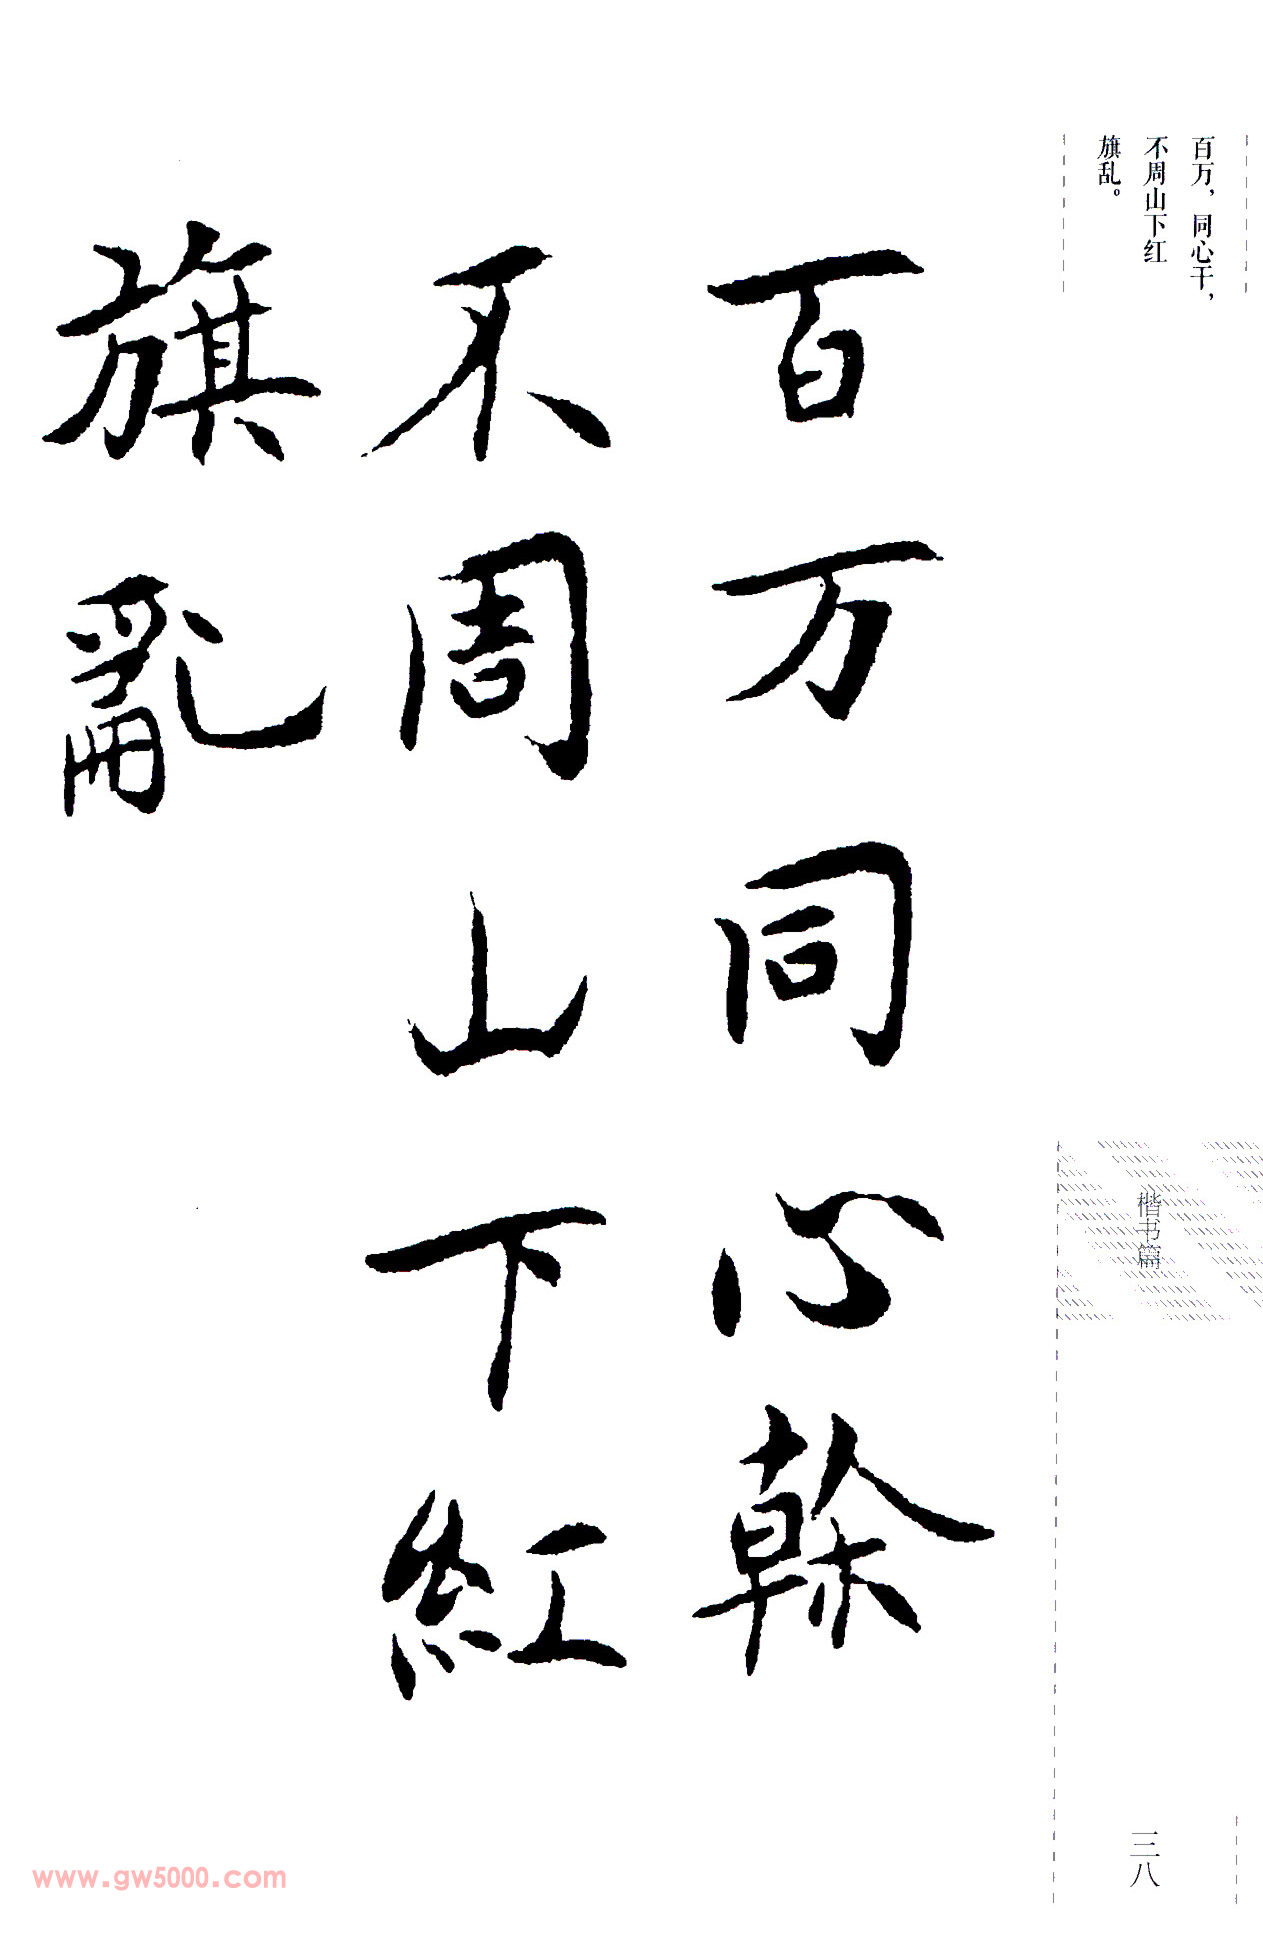 百万，同心干，
不周山下红
旗乱。
百万同心幹
不周山下紅
旗亂
楷书篇
三八
www.gw5000.com